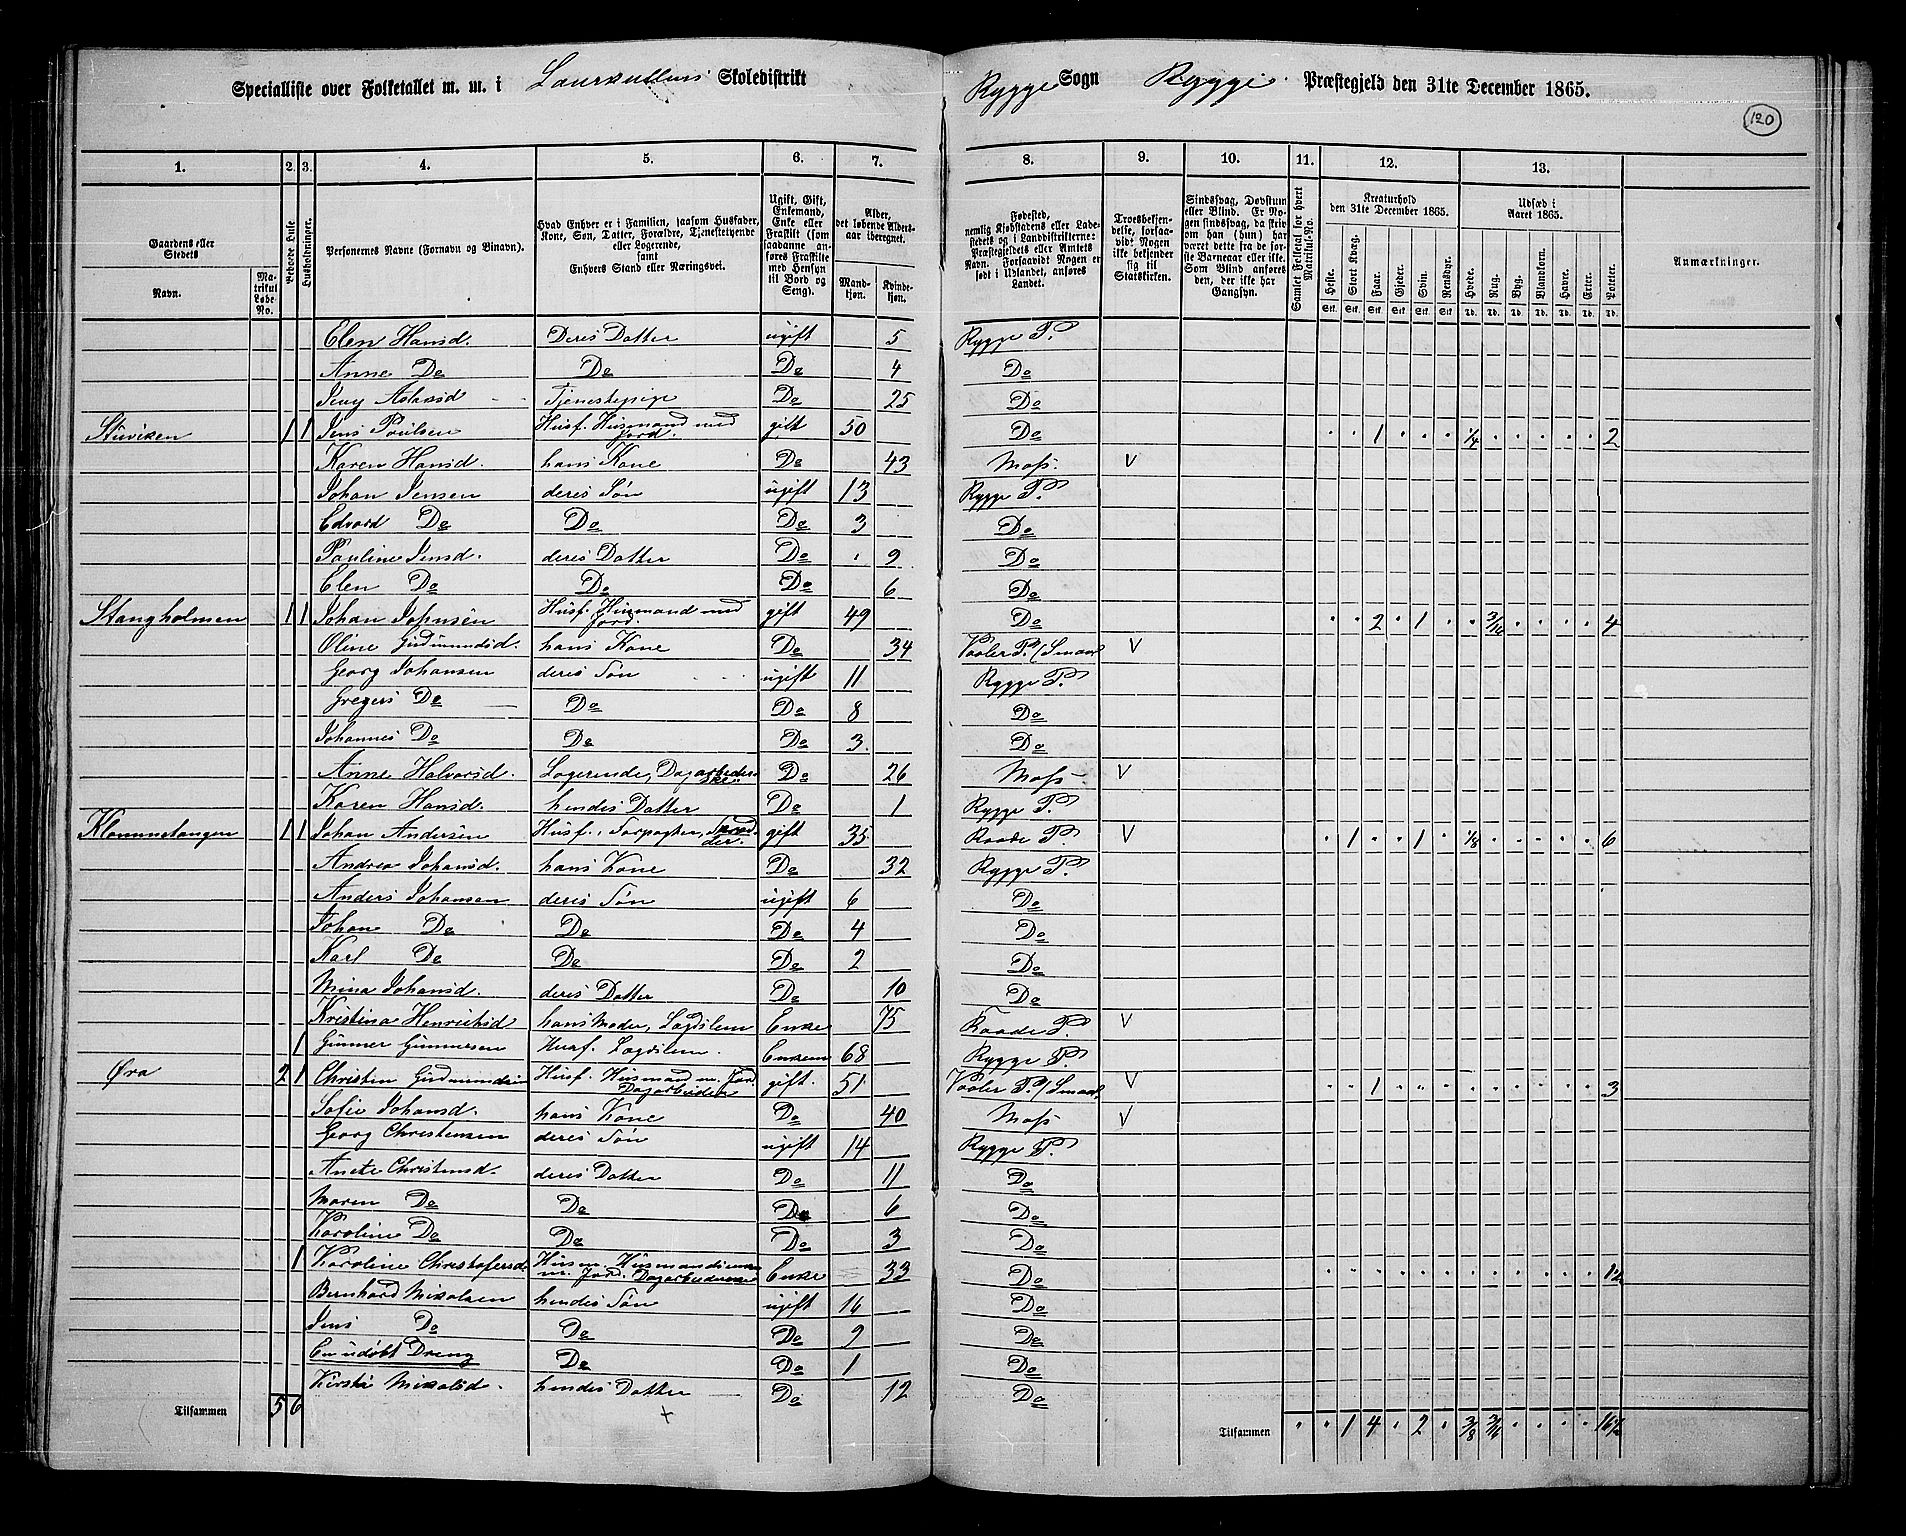 Specialliste over Folketallet m. m. i Skoledistrikt Rygge Sogn Rygge Præstegjeld den 31te December 1865.
120
1. 2. 3. 4. 5. 6. 7. 8. 9. 10. 11. 12. 13.
Gaardens eller Stedets
Navn.
Matrikul Løbe-No.
Beboede Huse
Husholdninger.
Personernes Navne (Fornavn og Binavn).
Hvad Enhver er i Familien, saasom Husfader, Kone, Søn, Datter, Forældre, Tjenestetyende eller Logerende, samt Enhvers Stand eller Næringsvei.
Ugift, Gift, Enkemand, Enke eller Fraskilt (som saadanne anføres Fraskilte med Hensyn til Bord og Seng).
Alder, det løbende Aldersaar iberegnet.
Mandkjøn. Kvindekjøn.
Fødested, nemlig Kjøbstadens eller Ladestedets og i Landdistrikterne: Præstegjeldets eller Amtets Navn. Forsaavidt Nogen er født i Udlandet, anføres Landet.
Troesbekjendelse, forsaavidt Nogen ikke bekjender sig til Statskirken.
Sindssvag, Døvstum eller Blind. Er Nogen sindssvag, da skriv om han (hun) har været dette fra de første Barneaar eller ikke. Som Blind anføres den, der ikke har Gangsyn.
Samlet Folketal for hvert Matrikul-No.
Kreaturhold den 31te December 1865.
Heste. Stort Kvæg. Faar. Gjeder. Svin. Rensdyr.
Udsæd i Aaret 1865.
Hvede. Rug. Byg. Blandkorn. Havre. Erter. Poteter.
Anmærkninger.
Elen Hansd. Deres Datter ugift 5 Rygge P.
Anne Do Do Do 4 Do
Tjenestepige Do 25 Do
Stuviken 1 1 Jens Poulsen Husf. Husmand med Jord. gift 50 Do 1 1/4 2
Karen Hansd. hans Kone Do 43 Moss. V
Johan Jensen deres Søn ugift 13 Rygge P.
Edvard Do Do Do 3 Do
Pauline Jensd. deres Datter Do 9 Do
Elen Do Do Do 6 Do
Stangholmen 1 1 Johan Johnsen Husf. Husmand med Jord. gift 49 Do 2 1 3/16 4
Oline Gudmundsd. hans Kone Do 34 Vaaler P./Smaal V
Georg Johansen deres Søn ugift 11 Rygge P.
Gregers Do Do Do 8 Do
Johannes Do Do Do 3 Do
Anne Halvorsd. Logerende, Dagarbeiderske Do 26 Moss V
Karen Hansd. hendes Datter Do 1 Rygge P.
1 1 Johan Andersen Husf., gift 35 Raade P. V 1 1 1/8 6
Andrea Johansd. hans Kone Do 32 Rygge P.
Anders Johansen deres Søn ugift 6 Do
Johan Do Do Do 4 Do
Karl Do Do Do 2 Do
Mina Johansd. deres Datter Do 10 Do
Kristina Henriksd hans Moder, Lægdslem Enke 75 Raade P. V
1 Gunner Gunnersen Husf. Lægdslem. Enkem 68 Rygge P.
Øra 2 1 Christen Gudmundsen Husf. Husmand m. Jord Dagarbeider gift. 51 Vaaler P./Smaal. V 1 3
Sofie Johansd. hans Kone Do 40 Moss V
Georg Christensen deres Søn ugift 14 Rygge P.
Anete Christensd. deres Datter Do 11 Do
Maren Do Do Do 6 Do
Karoline Do Do Do 3 Do
1 Karoline Christofersd. Husm. m. Jord. Dagarbeiderske Enke 33 Do 1 1/2
Bernhard Nikolsen hendes Søn ugift 16 Do
Jens Do Do Do 9 Do
En udøbt Dreng Do Do 1 Do
Kirsti Nikolsd. hendes Datter Do 12 Do
Tilsammen 5 6
Tilsammen 1 4 2 3/8 3/16 16 1/2